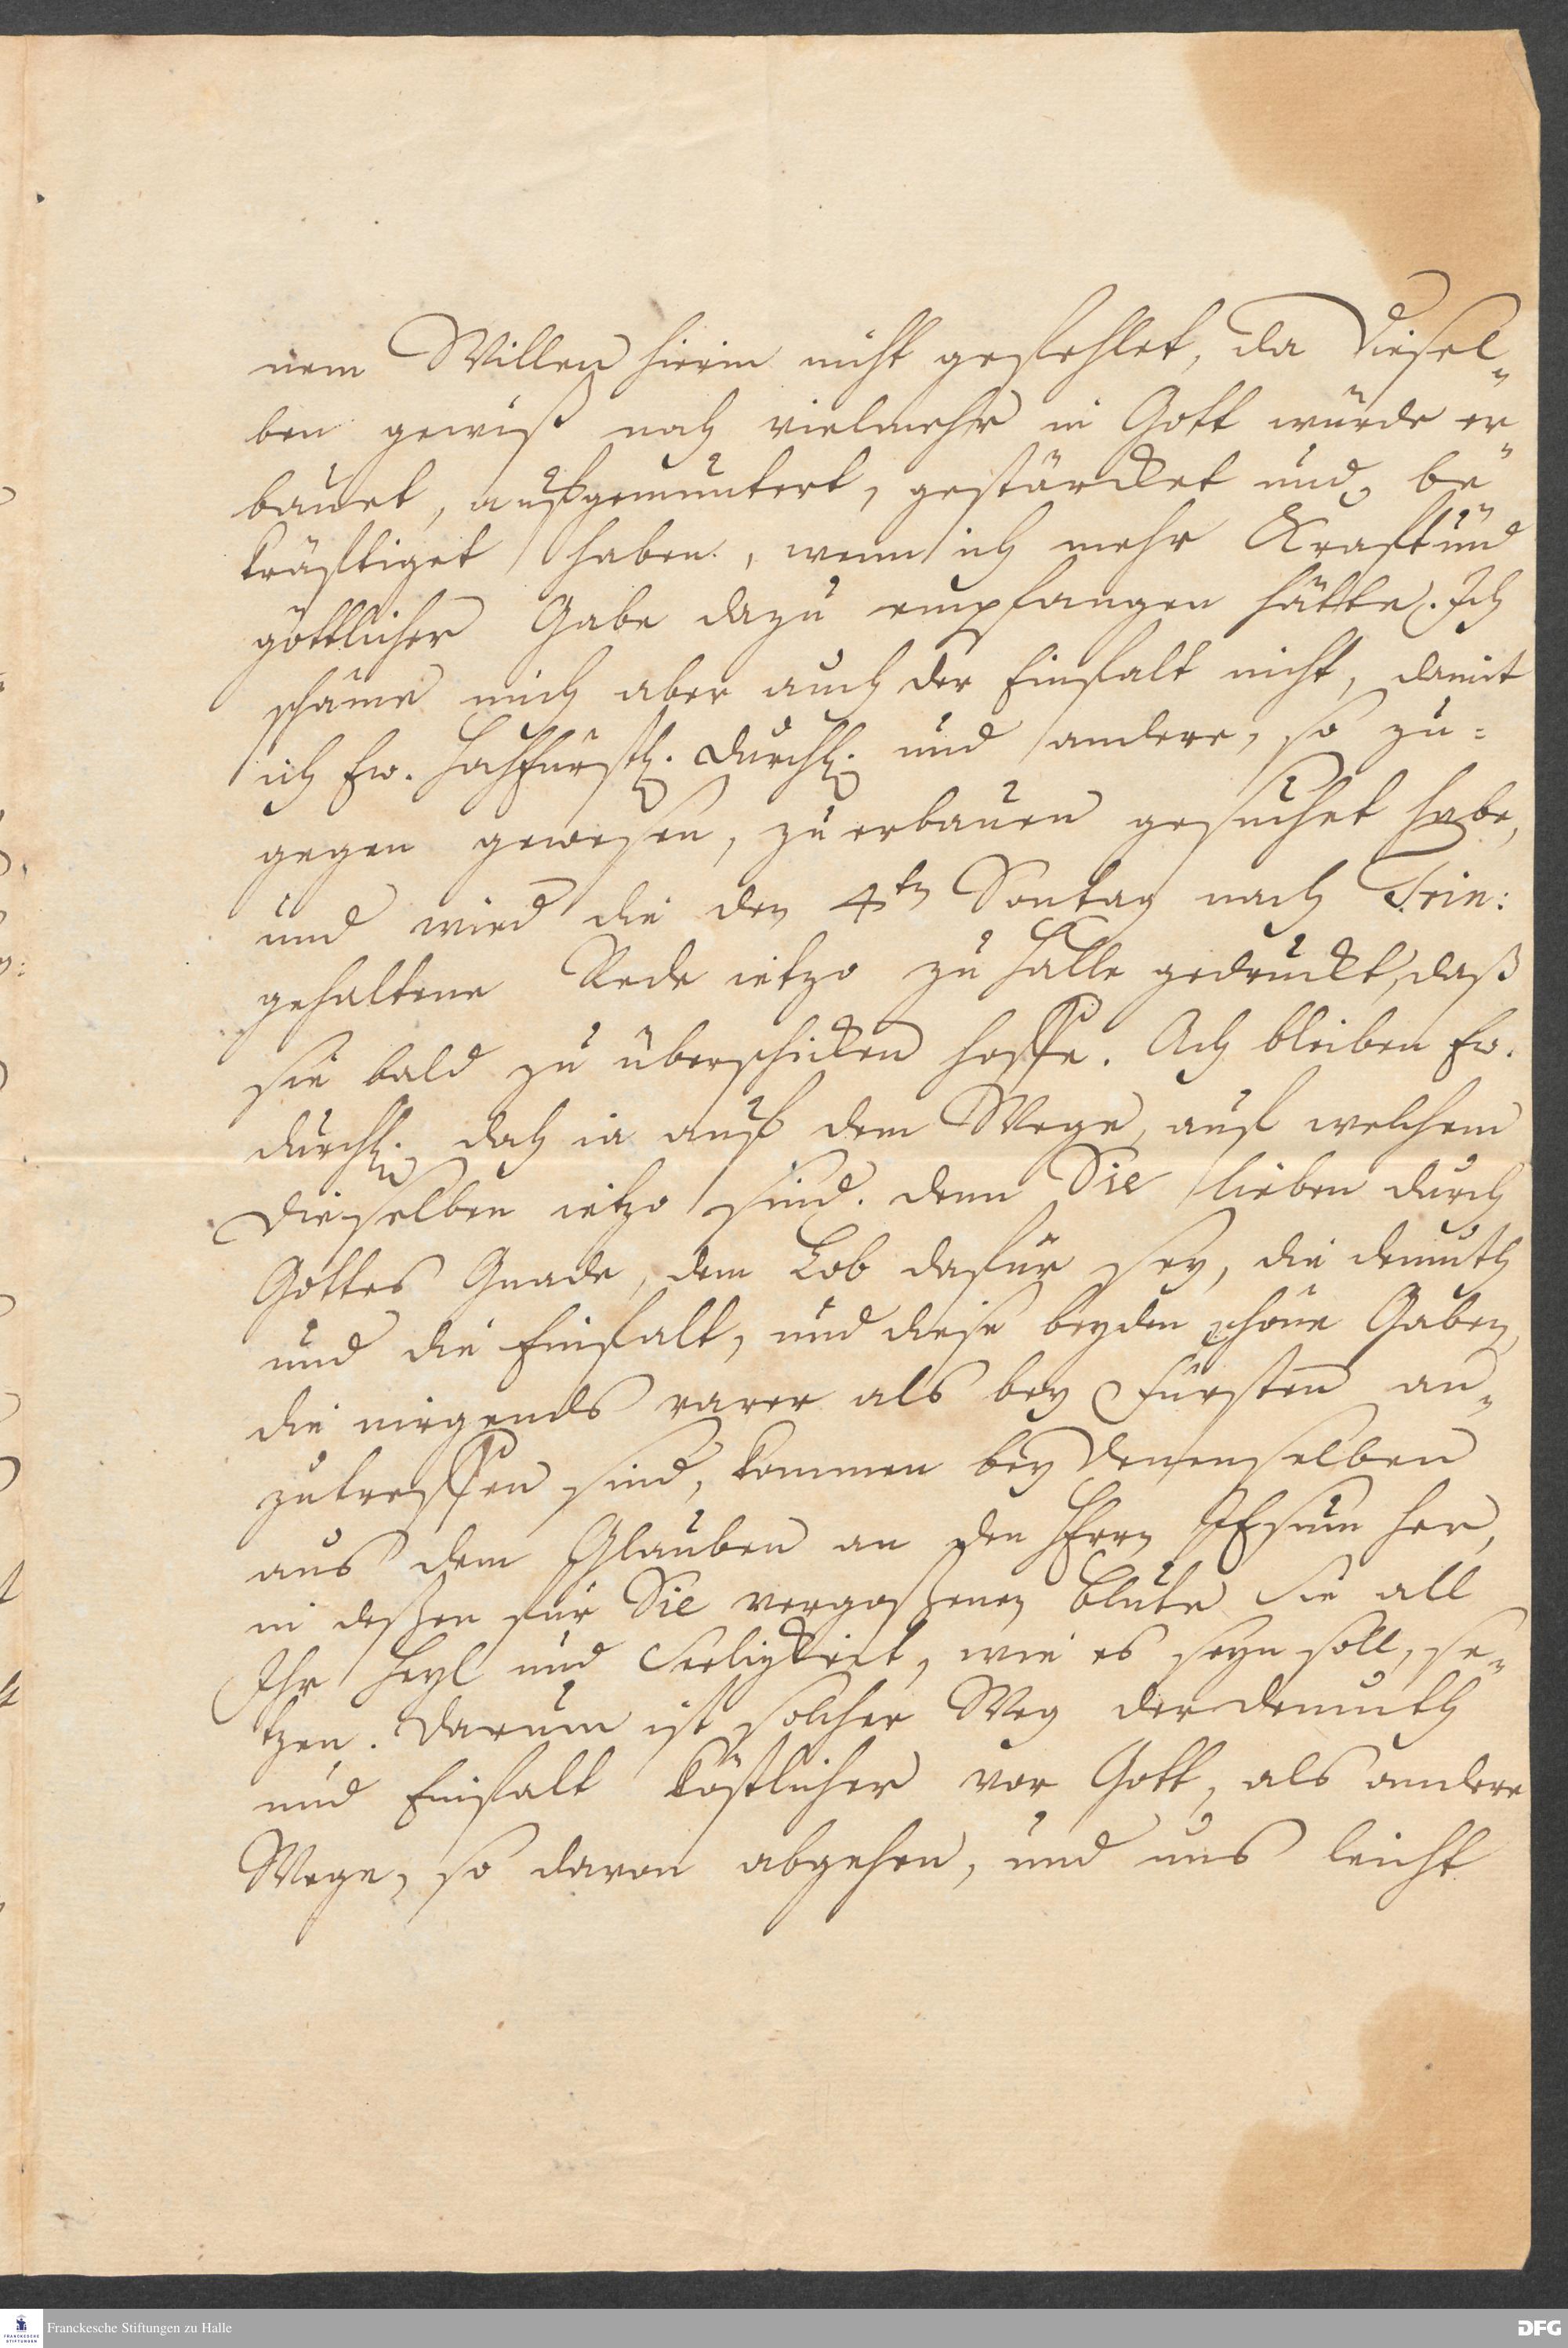 nem Willen hierin nicht gefehlet, da Diesel-
ben gewiß noch vielmehr in Gott würde er-
bauet, aufgemuntert, gestärcket und be-
kräftiget haben, wenn ich mehr Kraft und
göttlicher Gabe dazu empfangen hätte. Ich
schäme mich aber auch der Einfalt nicht, damit
ich Ew. Hochfürstl. Durchl. und andere, so zu-
gegen gewesen, zu erbauen gesuchet habe,
und wird die den 4ten Sontag nach Trin:
gehaltene Rede ietzo zu Halle gedruckt, daß
sie bald zu überschicken hoffe. Ach bleiben Ew.
Durchl. doch ia auf dem Wege, auf welchem
Dieselben ietzo sind. Denn Sie lieben durch
Gottes Gnade, dem Lob dafür sey, die Demuth
und die Einfalt, und diese beyden schöne Gaben,
die nirgends rarer als bey Fürsten an-
zutreffen sind, kommen bey Denenselben
aus dem Glauben an den HErrn JEsum her,
in deßen für Sie vergoßenen Blute Sie all
Ihr Heyl und Seeligkeit, wie es seyn soll, se-
tzen. Darum ist solcher Weg der Demuth
und Einfalt köstlicher vor Gott, als andere
Wege, so davon abgehen, und uns leicht
Franckesche Stiftungen zu Halle
DFG